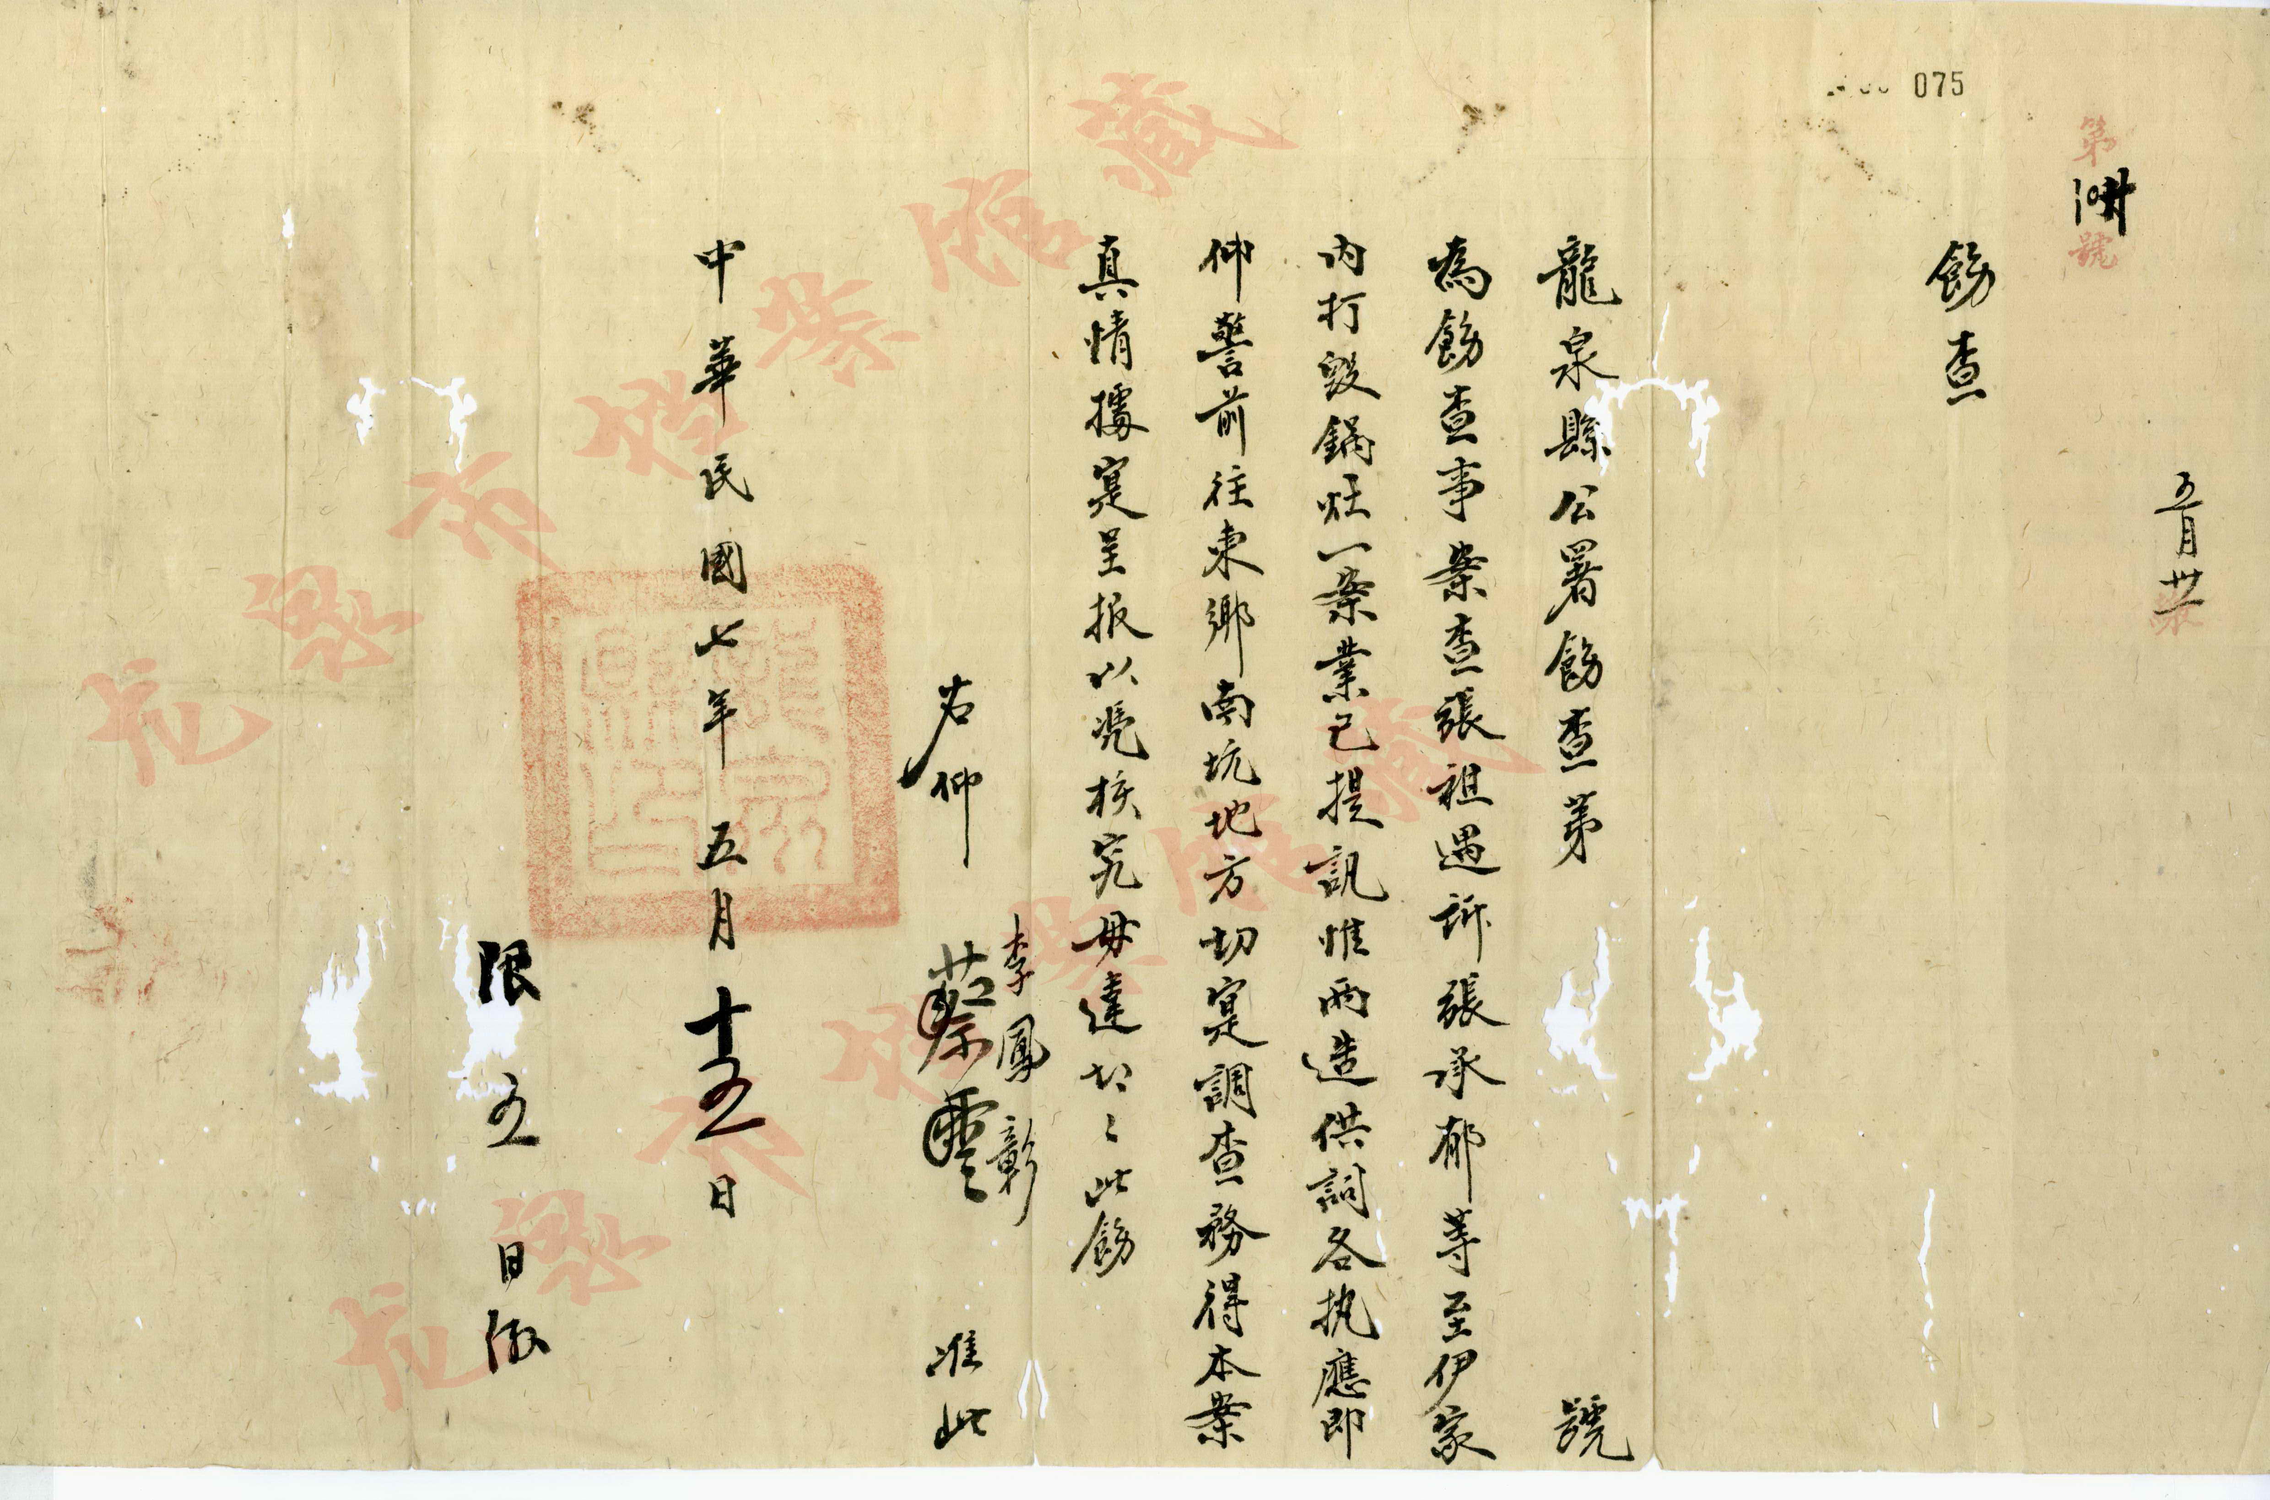 075
五月廿
第 號
飭查
龍泉縣公署飭查第 號
為飭查事案查張祖遇訴張承郁等至伊家
內打毀鍋灶一案業已提訊惟兩造供詞各执應即
仰警前往東鄉南坑地方切寔調查務得本案
真情據寔呈报以凴核究毋違切〻此飭
右仰 李鳳彰 蔡雲 准此
中華民國七年五月十五日
限五日缴
龍泉縣印
龙泉市档案馆藏
龙泉市档案馆藏